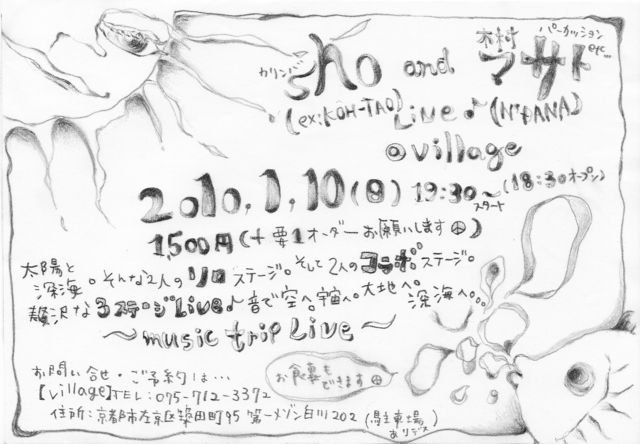 カリンバ sho and 木村マサト パーカッション etc…
(ex:KOH-TAO) Live♪ (N'DANA)
@village
2010,1,10(日) 19:30〜スタート (18:30オープン)
1,500円(+要1オーダーお願いします☮)
太陽と深海。そんな2人のソロステージ。そして2人のコラボステージ。
贅沢な3ステージLive♪音で空へ。宇宙へ。大地へ。深海へ。。
〜music trip Live〜
お食事もできます☮
お問い合せ・ご予約は…
[village]TEL:075-712-3372
住所:京都市左京区築田町95 第一メゾン白川202 (駐車場ありデス)